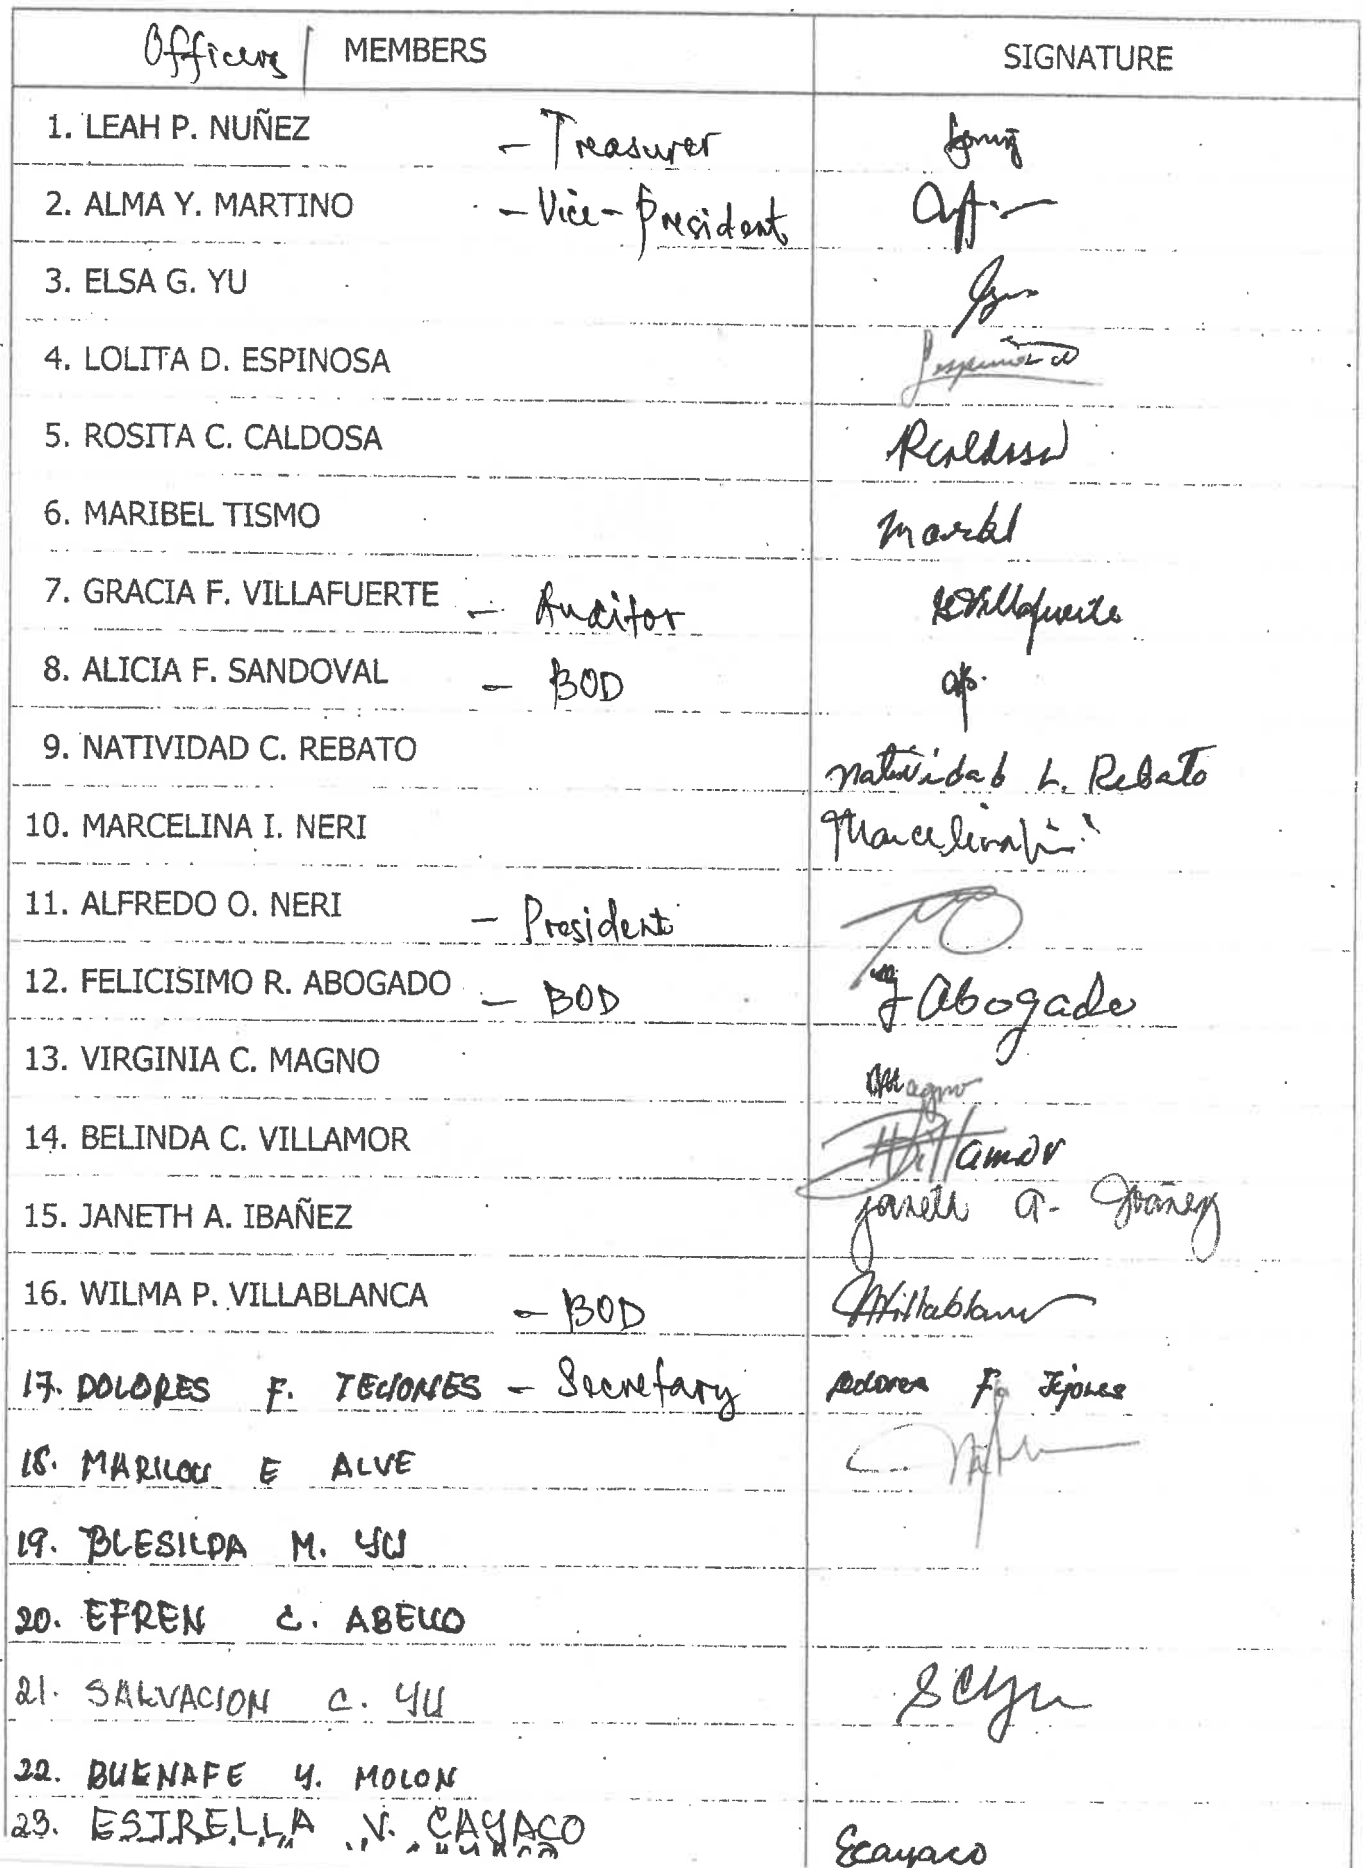 Officers / MEMBERS SIGNATURE
1. LEAH P. NUÑEZ - Treasurer
2. ALMA Y. MARTINO - Vice-President
3. ELSA G. YU
4. LOLITA D. ESPINOSA
5. ROSITA C. CALDOSA RCaldosa
6. MARIBEL TISMO
7. GRACIA F. VILLAFUERTE - Auditor
8. ALICIA F. SANDOVAL - BOD
9. NATIVIDAD C. REBATO Natividad L. Rebato
10. MARCELINA I. NERI
11. ALFREDO O. NERI - President
12. FELICISIMO R. ABOGADO - BOD Abogado
13. VIRGINIA C. MAGNO Magno
14. BELINDA C. VILLAMOR Villamor
15. JANETH A. IBAÑEZ Janeth A. Ibañez
16. WILMA P. VILLABLANCA - BOD
17. DOLORES F. TEJONES - Secretary Dolores F. Tejones
18. MARILOU E ALVE
19. BLESILDA M. YU
20. EFREN C. ABELLO
21. SALVACION C. YU SCYu
22. BUENAFE Y. MOLON
23. ESTRELLA V. CAYACO Ecayaco